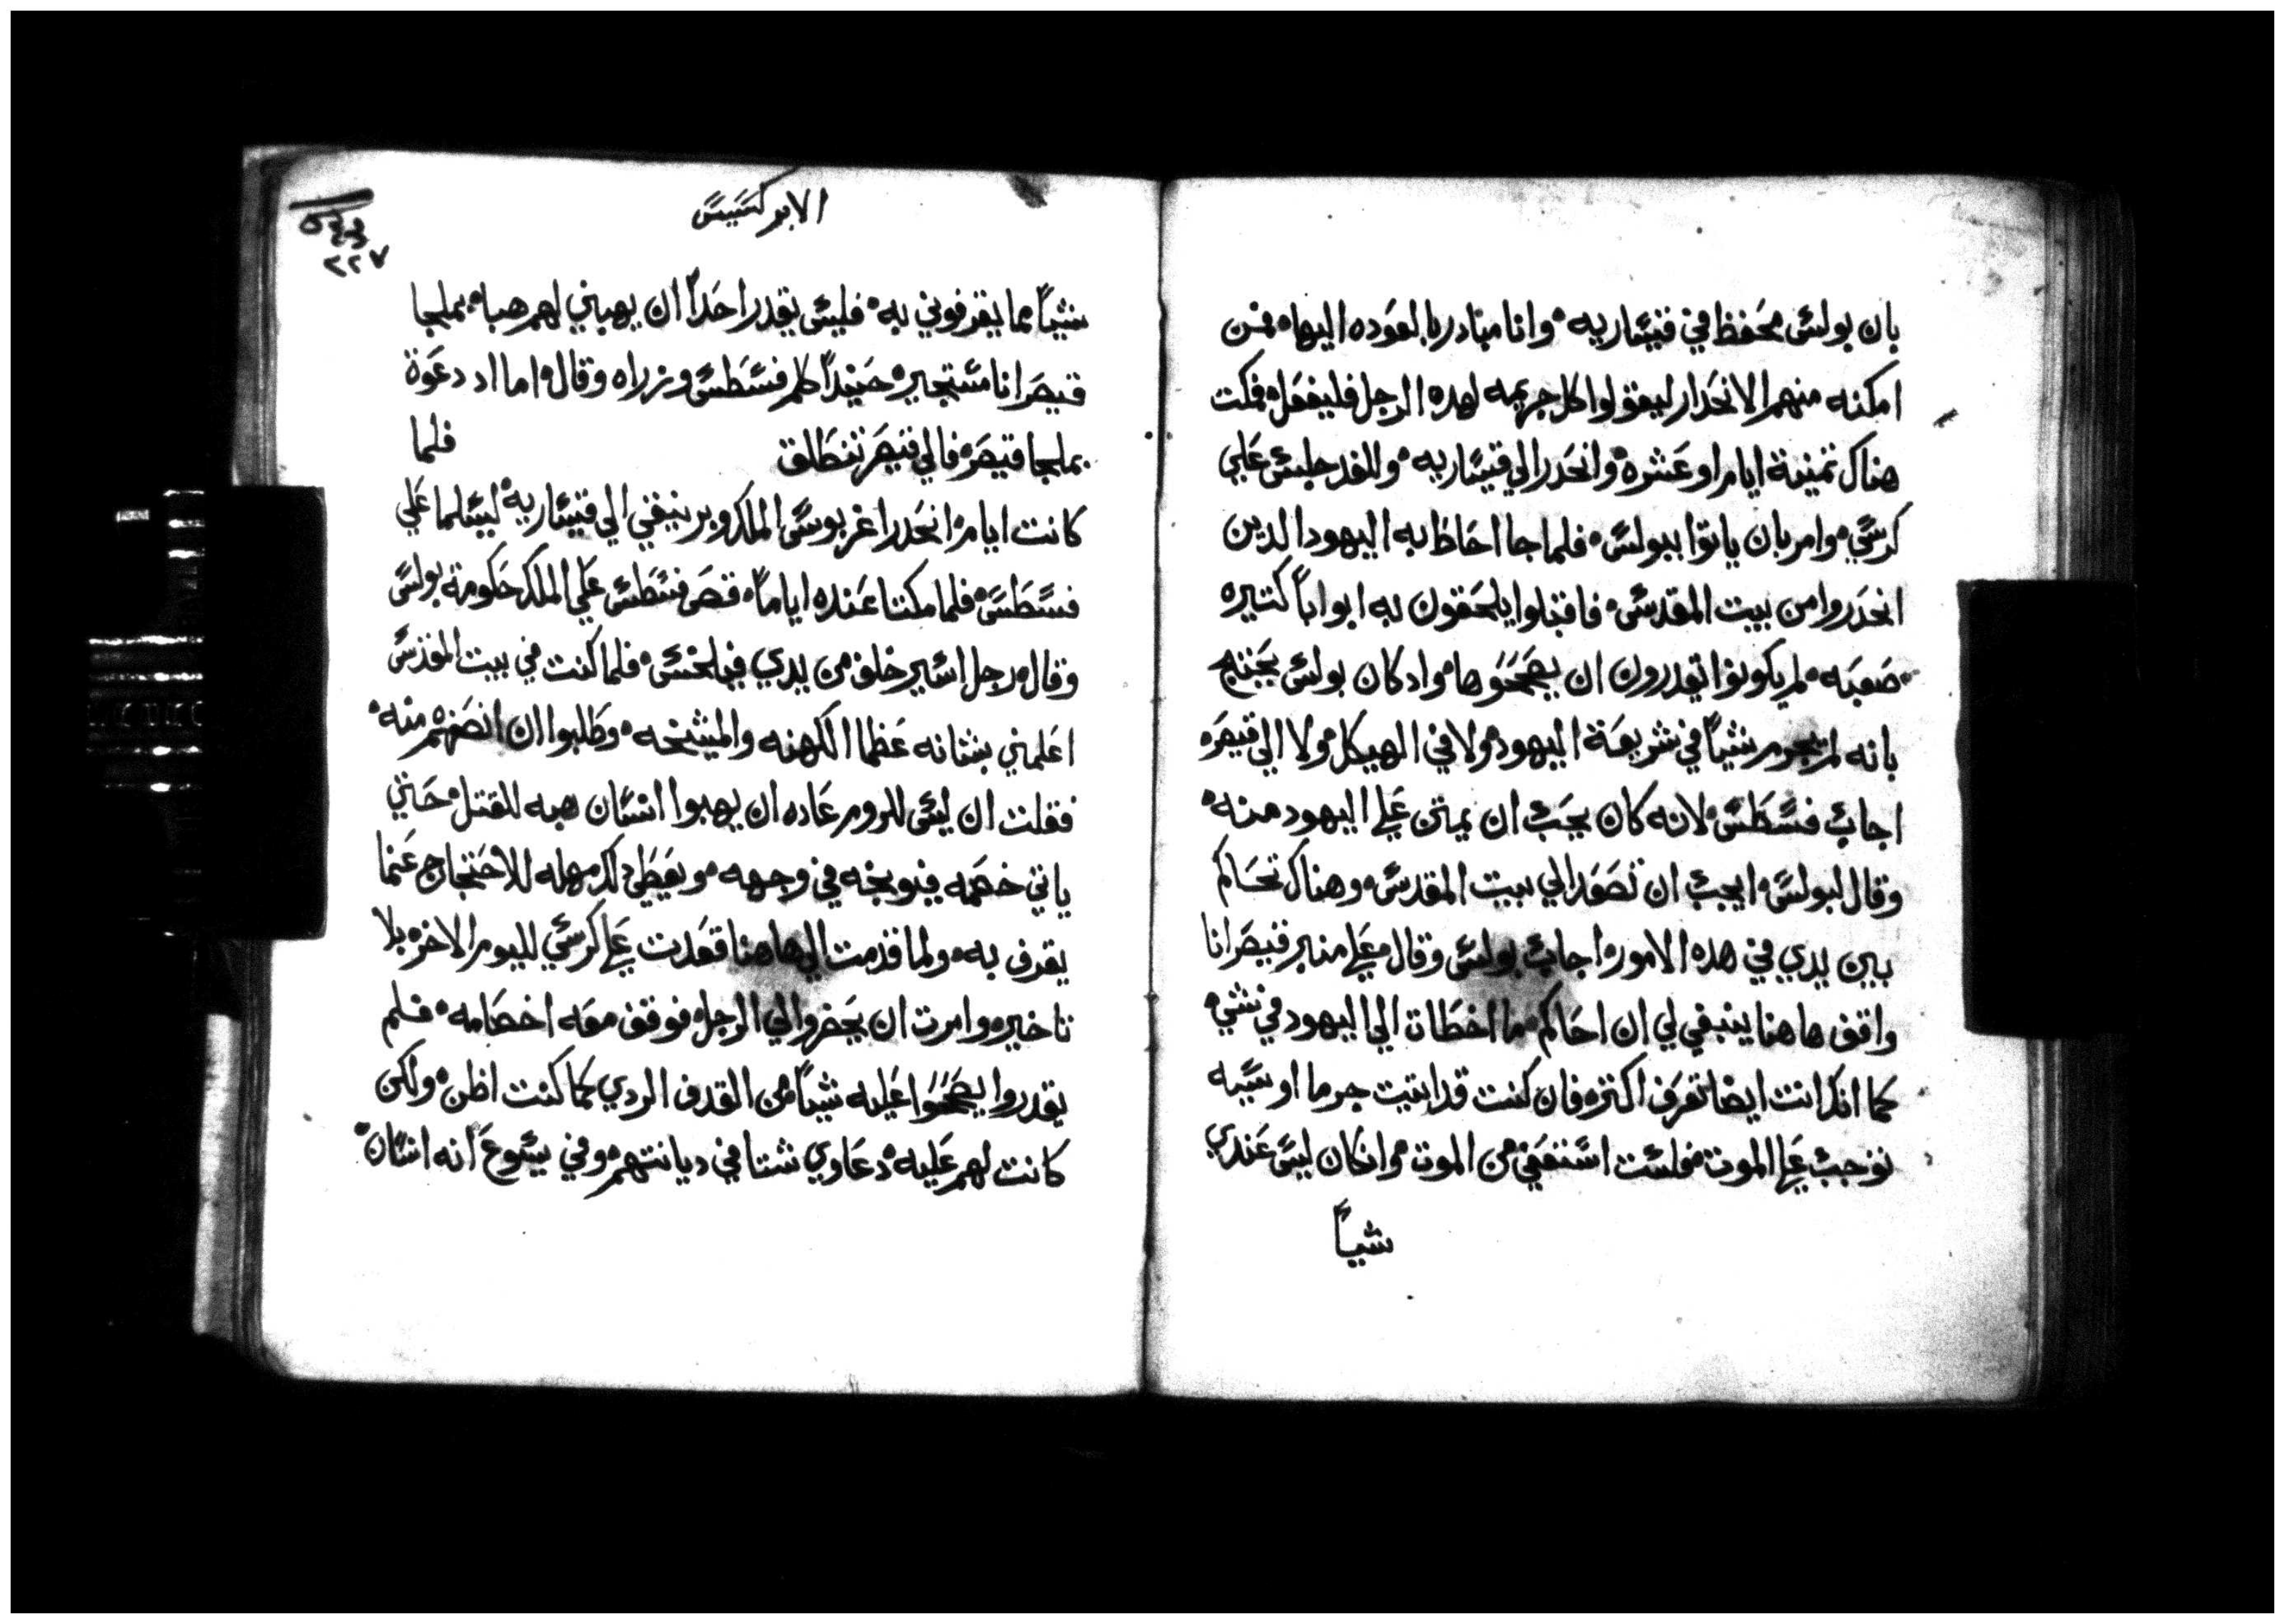 بان بولس محفظ في قيساريه وانا مبادر بالعوده اليها فمن
امكنه منهم الانحدار ليقولوا كل جريمه لهده الرجل فليفعل فمكت
هناك تمنية ايام او عشره وانحدر الي قيساريه وللغد جلس علي
كرسي وامر بان ياتوا ببولس فلما جا احاظ به اليهود الدين
انحدروا من بيت المقدس فاقبلوا يلحقون به ابوابا كتيره
صعبه لم يكونوا يقدرون ان يصححوها واد كان بولس يحتج
بانه لم يجرم شيا في شريعة اليهود ولا في الهيكل ولا الي قيصر
اجاب فسطس لانه كان يحب ان يمتن علي اليهود منه
وقال لبولس ايجب ان تصعد الي بيت المقدس وهناك تحاكم
بين يدي في هده الامور اجاب بولس وقال علي منبر قيصر انا
واقف هاهنا ينبغي لي ان احاكم ما اخطات الي اليهود في شي
كما انك انت ايضا تعرف اكتر فان كنت قد اتيت جرما او سيه
توجب علي الموت فلست استعفي من الموت وان كان ليس عندي
شياً
الابركسيس
٢٢٧
شياً مما يقرفوني به فليس يقدر احداً ان يهبني لهم هبا بملجا
قيصر انا مستجير حينيداً كلم فسطس وزراه وقال اما اد دعوة
بملجا قيصر فالي قيصر تنطلق فلما
كانت ايام انحدر اغربوس الملك وبرنيقي الي قيساريه ليسلما علي
فسطس فلما مكتا عنده اياماً قص فسطس علي الملك حكومة بولس
وقال رجل اسير خلف من يدي فيلخس فلما كنت في بيت المقدس
اعلمني بشانه عظما الكهنه والمشيخه وطلبوا ان انصفهم منه
فقلت ان ليس للروم عاده ان يهبوا انسان هبه للقتل حتي
ياتي خصمه فيوبخه في وجهه ويعطي لك مهله للاحتجاج عنما
يقرف به ولما قدمت الي هاهنا قعدت علي كرسي لليوم الاخر بلا
تاخير وامرت ان يحضروا الي الرجل فوقف معه اخصامه فلم
يقدروا يصححوا عليه شياً من القدف الردي كما كنت اظن ولكن
كانت لهم عليه دعاوي شتا في ديانتهم وفي يسوع انه انسان